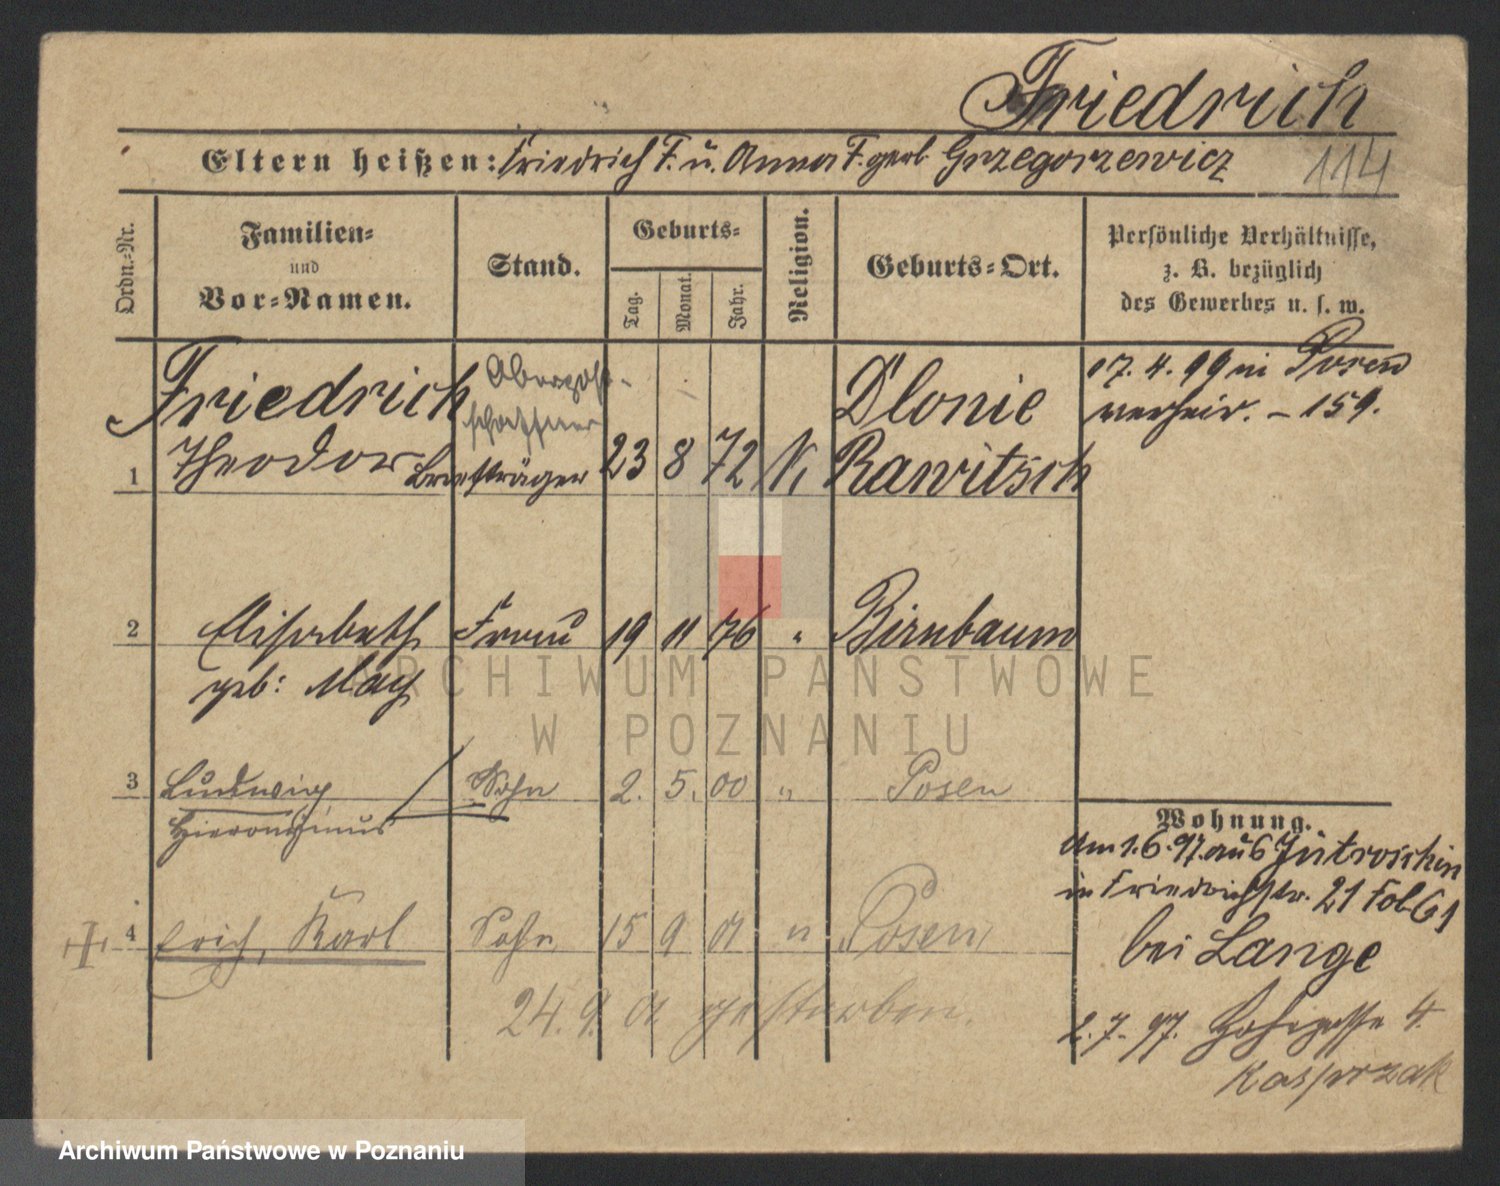 Friedrich
Eltern heißen: Friedrich F. u. Anna F. geb Grzegorzewicz 114
Ordn.-Nr.
Familien-
und
Vor-Namen.
Stand.
Geburts-
Tag.
Monat.
Jahr.
Religion.
Geburts-Ort.
Persönliche Verhältnisse,
z. B. bezüglich
des Gewerbes u. s. w.
Friedrich Dlonie 17. 4. 99 in Posen
verheir. – 159.
1 Theodor Briefträger 23 8 72 Rawitsch
2 Elisabeth Frau 19 11 76 " Birnbaum
geb: May
3 Ludwig Sohn 2. 5. 00 " Posen
Hieronymus
Wohnung.
Am 1.6.97. aus Jutroschin
in Friedrichstr. 21 Fol 61
4 Erich, Karl Sohn 15 9 01 " Posen
bei Lange
24. 9. 01 gestorben.
2. 7. 97. 4.
Kasprzak
ARCHIWUM PAŃSTWOWE
W POZNANIU
Archiwum Państwowe w Poznaniu